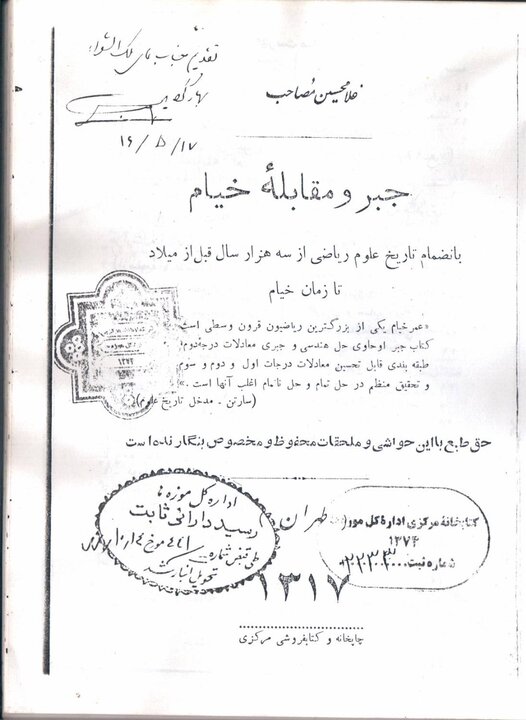 تقدیم جناب آقای ملک الشعراء
بهار گردید
۱۷/۵/۱۶
غلامحسین مصاحب
جبر و مقابلهٔ خیام
بانضمام تاریخ علوم ریاضی از سه هزار سال قبل از میلاد
تا زمان خیام
«عمر خیام یکی از بزرگترین ریاضیون قرون وسطی است
کتاب جبر او حاوی حل هندسی و جبری معادلات درجهٔ دوم
طبقه بندی قابل تحسین معادلات درجات اول و دوم و سوم
و تحقیق منظم در حل تمام و حل ناتمام اغلب آنها است .»
(سارتن . مدخل تاریخ علوم)
حق طبع با این حواشی و ملحقات محفوظ و مخصوص بنگارنده است
اداره کل موزه ها
رسید دارائی ثابت
طی قبض شماره
۴۴۱ مورخ
تحویل انبار شد
طهران
کتابخانه مرکزی اداره کل موزه
۱۳۷۴
شماره ثبت
۱۳۱۷
چاپخانه و کتابفروشی مرکزی